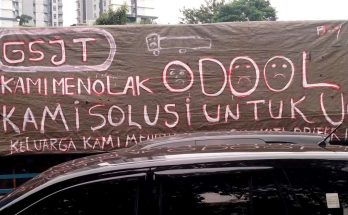 GSJT
KAMI MENOLAK ODOOL
KAMI SOLUSI UNTUK U
KELUARGA KAMI